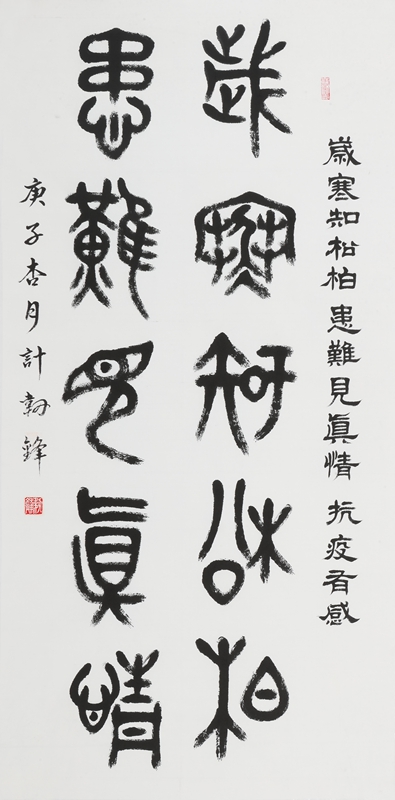 歲寒知松柏患難見眞情 抗疫有感
歲寒知松柏
患難見眞情
庚子杏月計勃鋒